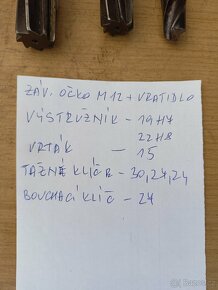 ZÁV. OČKO M12 + VRATIDLO
VÝSTRUŽNÍK - 19H7
22H8
VRTÁK - 15
TAŽNÉ KLÍČE - 30,27,24
BOUCHACÍ KLÍČ - 27